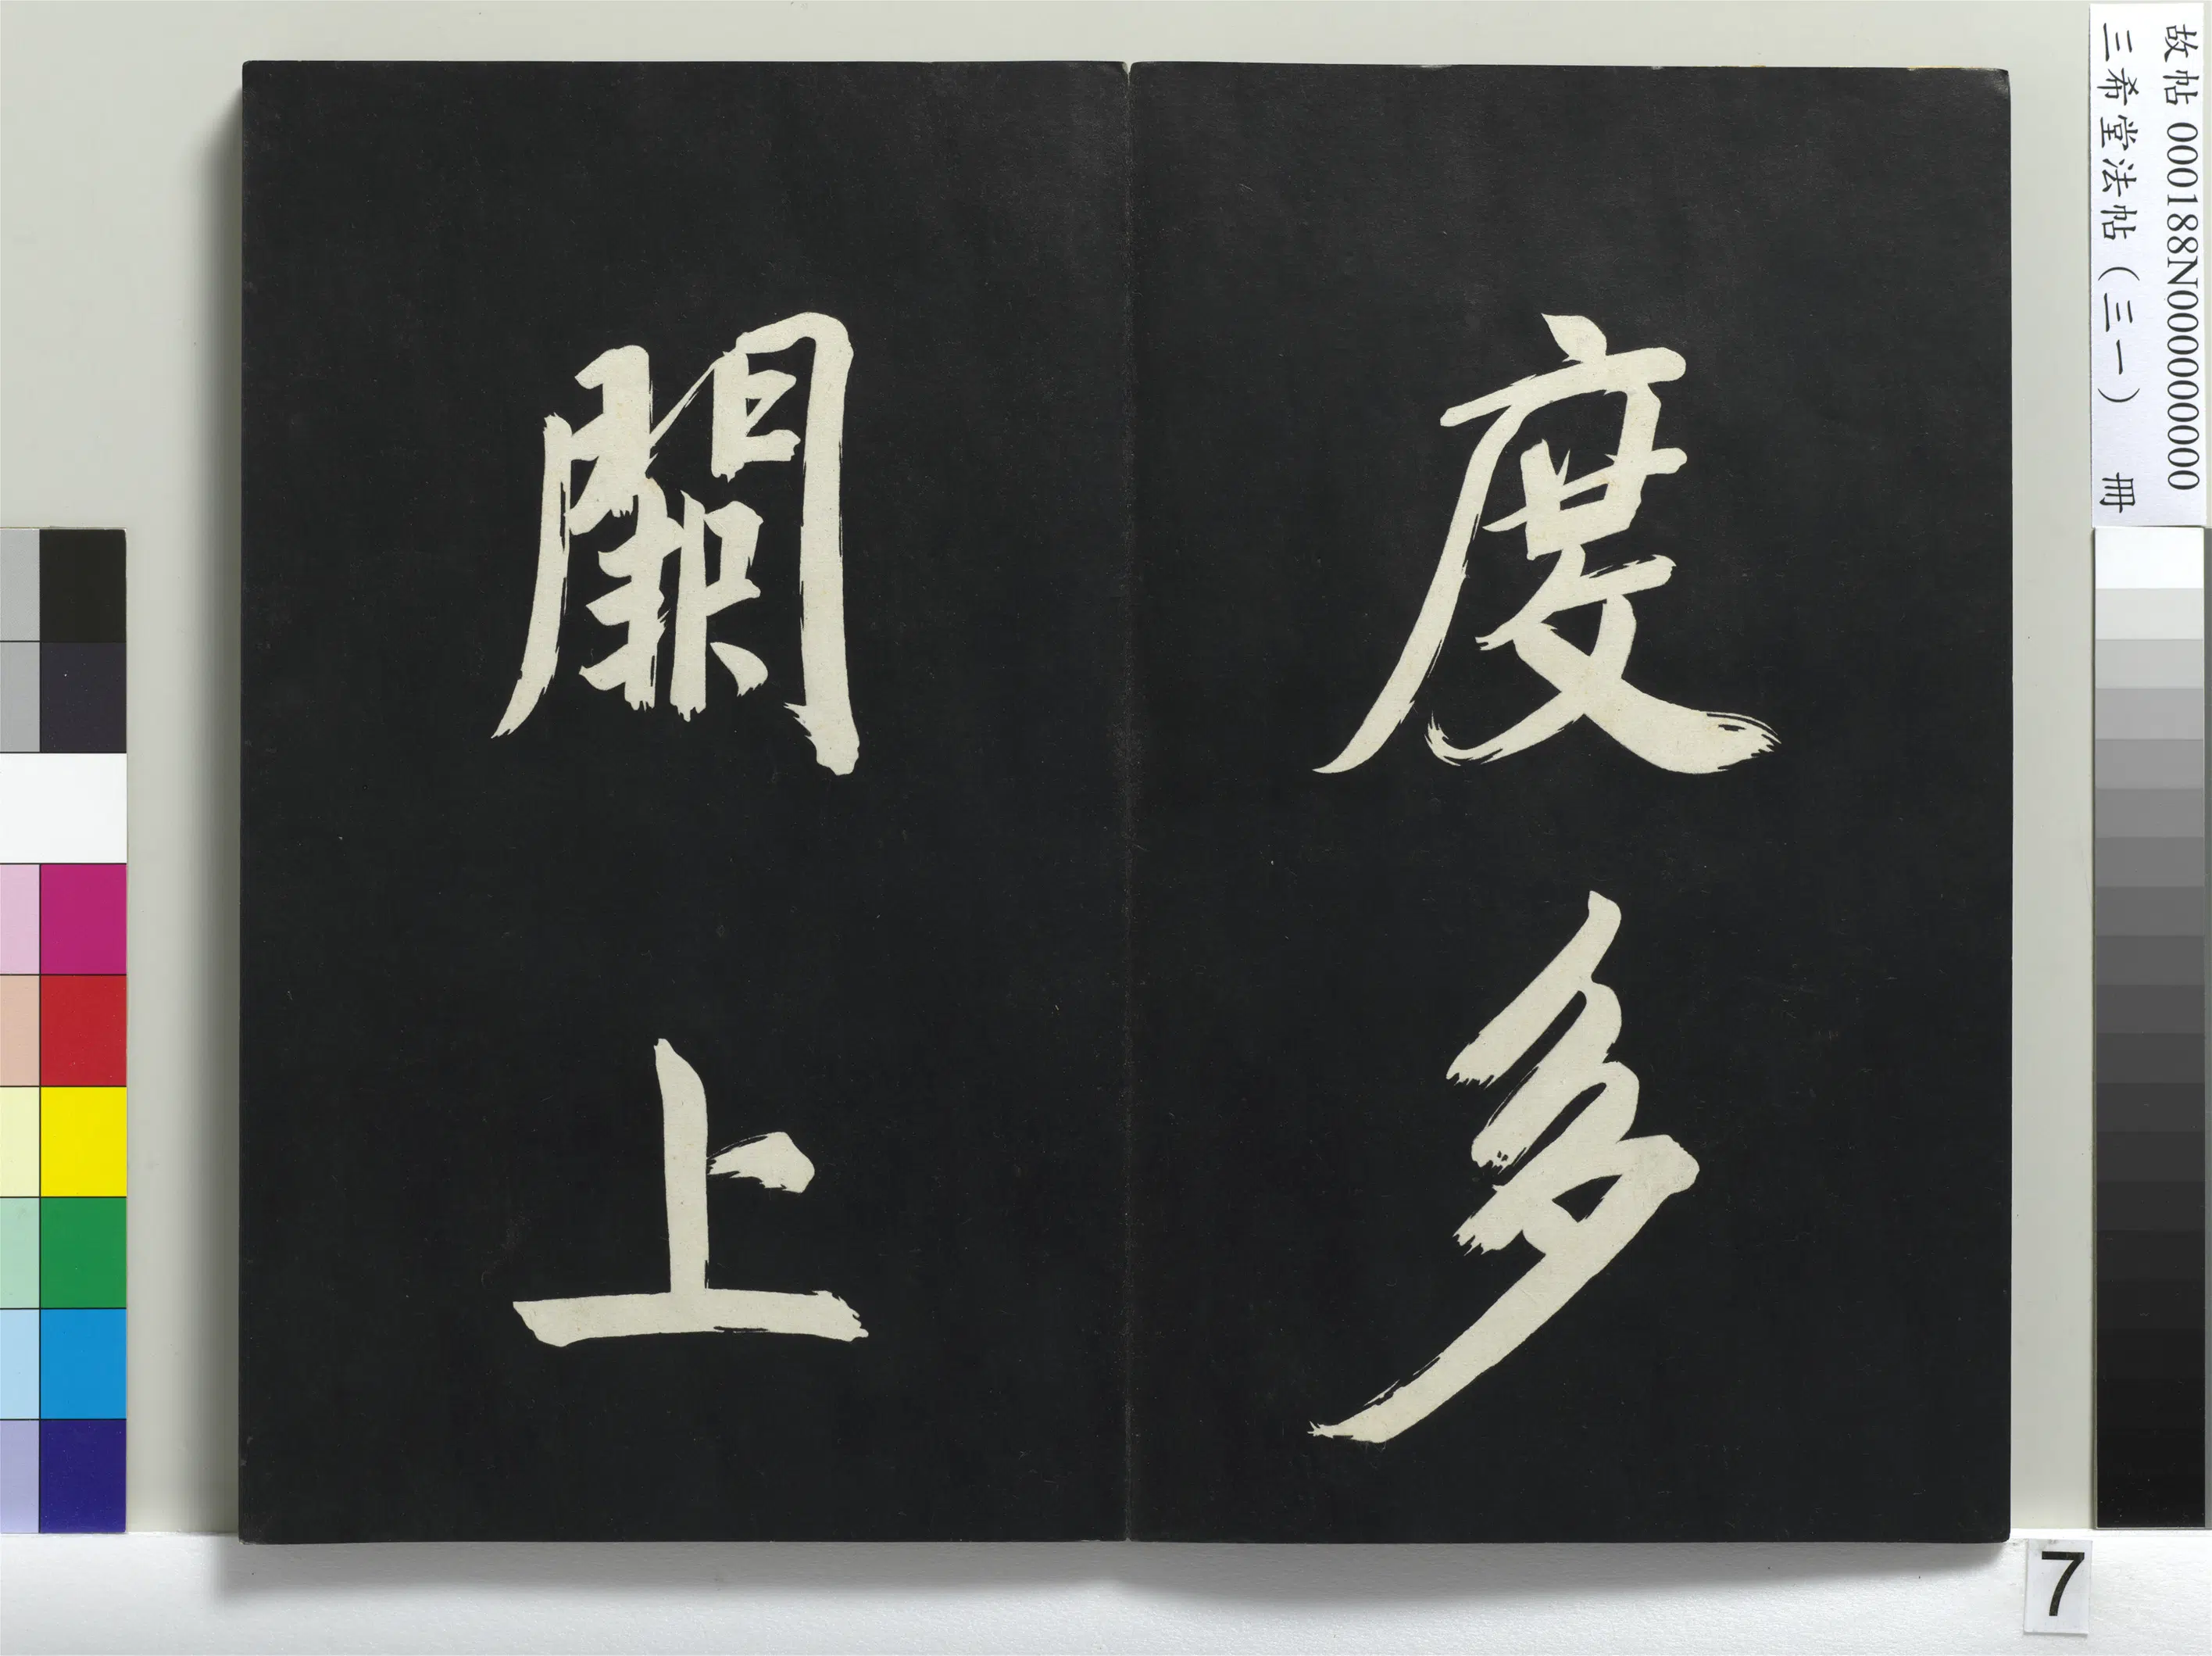 故帖 000188N000000000
三希堂法帖（三一） 冊
度多
上
7